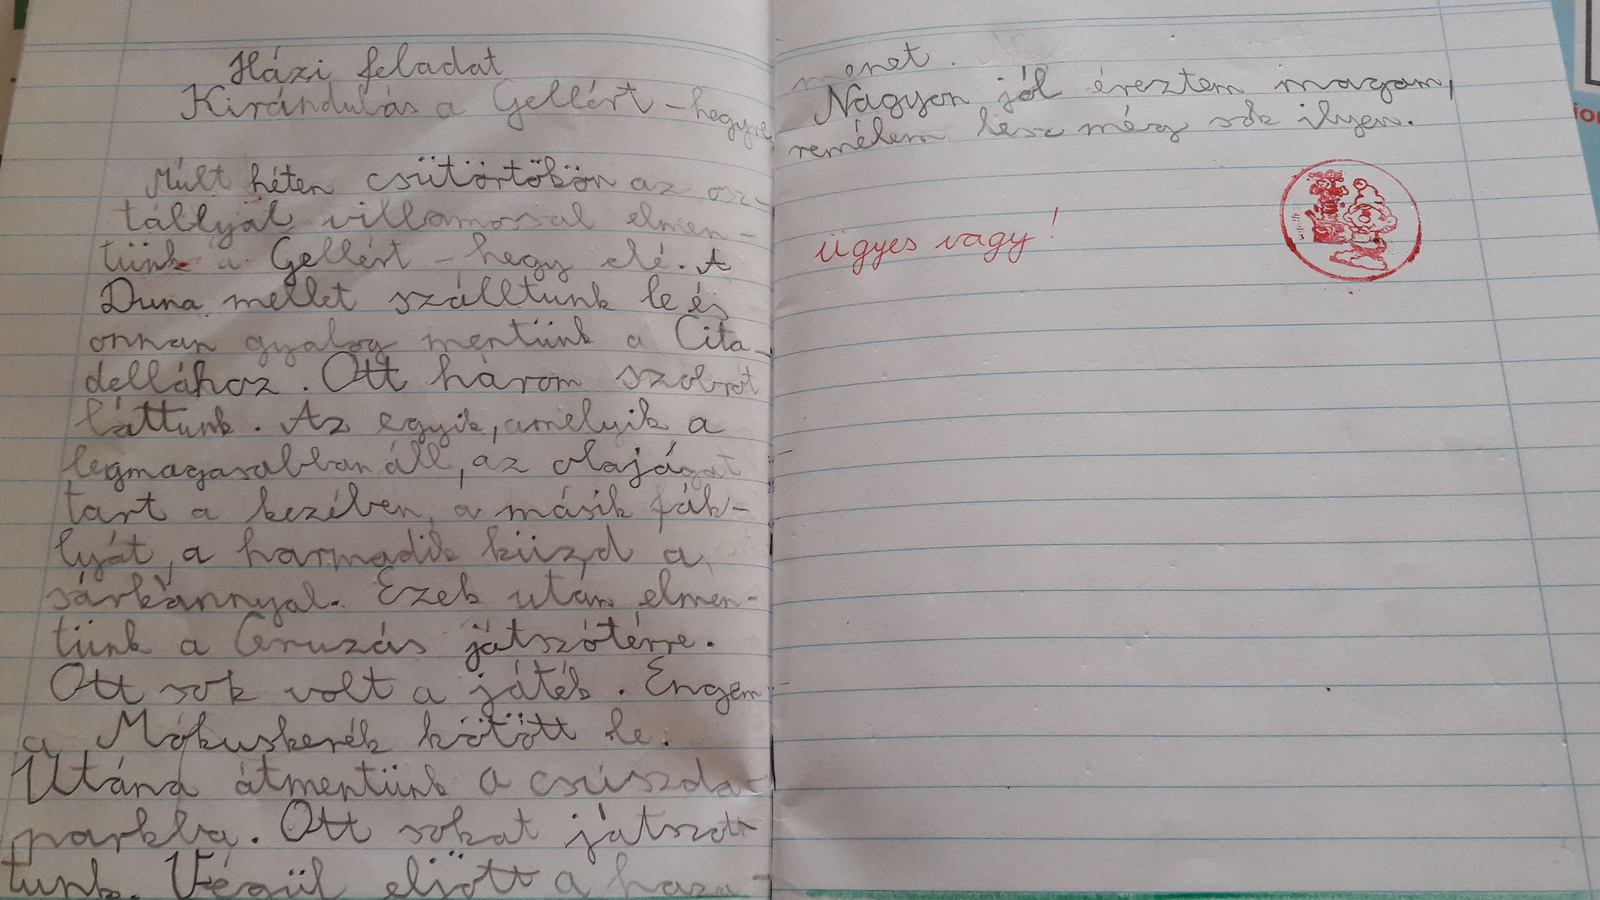 Házi feladat
Kirándulás a Gellért-hegyre
Múlt héten csütörtökön az osz-
tállyal villamossal elmen-
tünk a Gellért-hegy elé. A
Duna mellet szálltunk le és
onnan gyalog mentünk a Cita-
dellához. Ott három szobrot
láttunk. Az egyik, amelyik a
legmagasabban áll, az olajágat
tart a kezében, a másik fák-
lyát, a harmadik küzd a
sárkánnyal. Ezek után elmen-
tünk a Ceruzás játszótérre.
Ott sok volt a játék. Engem
a Mókuskerék kötött le.
Utána átmentünk a csúszda-
parkba. Ott sokat játszot-
tunk. Végül eljött a haza-
menet.
Nagyon jól éreztem magam,
remélem lesz még sok ilyen.
ügyes vagy!